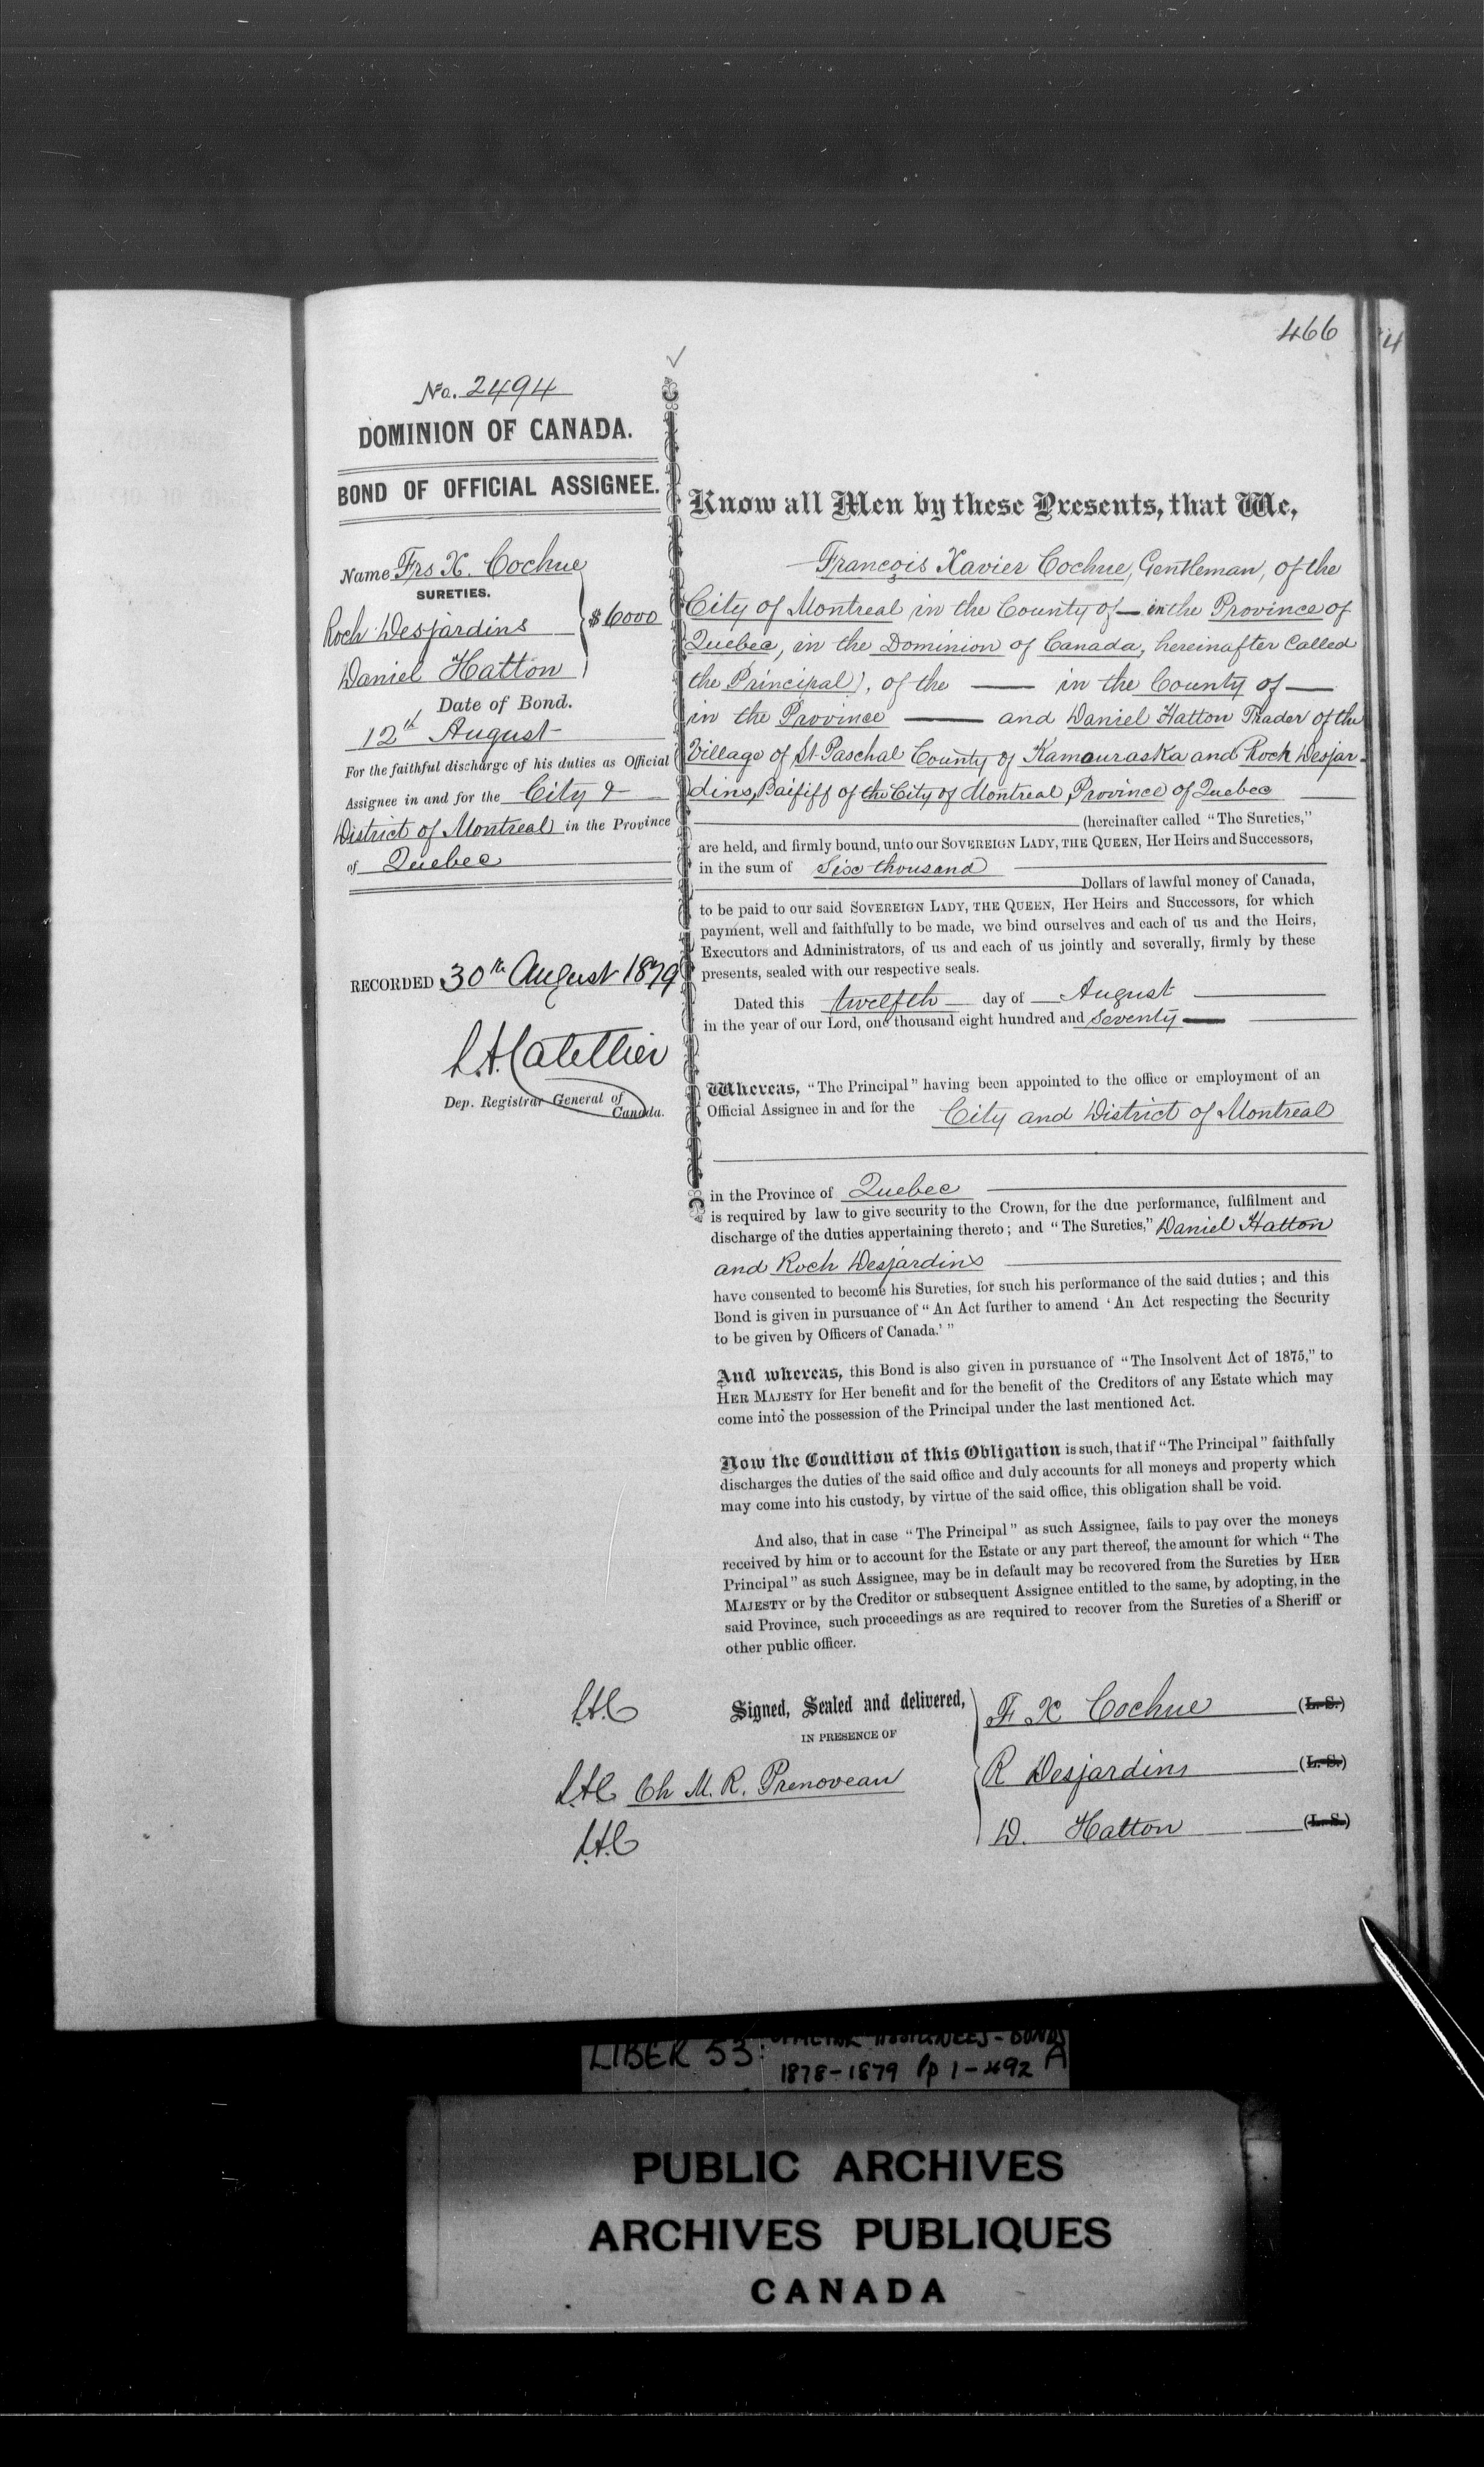 466
4
No. 2494
DOMINION OF CANADA.
BOND OF OFFICIAL ASSIGNEE.
Name Frs X. Cochue
SURETIES.
Roch Desjardins
$6000
Daniel Hatton
Date of Bond.
12th August
For the faithful discharge of his duties as Official
Assignee in and for the City &
District of Montreal in the Province
of Quebec
RECORDED 30th August 1879
L.A. Catellier
Dep. Registrar General of
Canada.
Know all Men by these Presents, that We,
François Xavier Cochue, Gentleman, of the
City of Montreal in the County of — in the Province of
Quebec, in the Dominion of Canada, hereinafter Called
the Principal), of the — in the County of —
in the Province — and Daniel Hatton Trader of the
Village of St. Paschal County of Kamouraska and Roch Desjar-
dins, Bailiff of the City of Montreal, Province of Quebec
(hereinafter called "The Sureties,"
are held, and firmly bound, unto our SOVEREIGN LADY, THE QUEEN, Her Heirs and Successors,
in the sum of Six thousand
Dollars of lawful money of Canada,
to be paid to our said SOVEREIGN LADY, THE QUEEN, Her Heirs and Successors, for which
payment, well and faithfully to be made, we bind ourselves and each of us and the Heirs,
Executors and Administrators, of us and each of us jointly and severally, firmly by these
presents, sealed with our respective seals.
Dated this twelfth day of August
in the year of our Lord, one thousand eight hundred and seventy —
Whereas, "The Principal" having been appointed to the office or employment of an
Official Assignee in and for the City and District of Montreal
in the Province of Quebec
is required by law to give security to the Crown, for the due performance, fulfilment and
discharge of the duties appertaining thereto; and "The Sureties," Daniel Hatton
and Roch Desjardins
have consented to become his Sureties, for such his performance of the said duties; and this
Bond is given in pursuance of "An Act further to amend 'An Act respecting the Security
to be given by Officers of Canada.'"
And whereas, this Bond is also given in pursuance of "The Insolvent Act of 1875," to
HER MAJESTY for Her benefit and for the benefit of the Creditors of any Estate which may
come into the possession of the Principal under the last mentioned Act.
Now the Condition of this Obligation is such, that if "The Principal" faithfully
discharges the duties of the said office and duly accounts for all moneys and property which
may come into his custody, by virtue of the said office, this obligation shall be void.
And also, that in case "The Principal" as such Assignee, fails to pay over the moneys
received by him or to account for the Estate or any part thereof, the amount for which "The
Principal" as such Assignee, may be in default may be recovered from the Sureties by HER
MAJESTY or by the Creditor or subsequent Assignee entitled to the same, by adopting, in the
said Province, such proceedings as are required to recover from the Sureties of a Sheriff or
other public officer.
L.A.C Signed, Sealed and delivered, F X Cochue (L. S.)
IN PRESENCE OF
L.A.C Ch M. R. Prenoveau R Desjardins (L. S.)
L.A.C D. Hatton (L. S.)
LIBER 53: OFFICIAL ASSIGNEES - BONDS
1878-1879 pp 1-492 A
PUBLIC ARCHIVES
ARCHIVES PUBLIQUES
CANADA